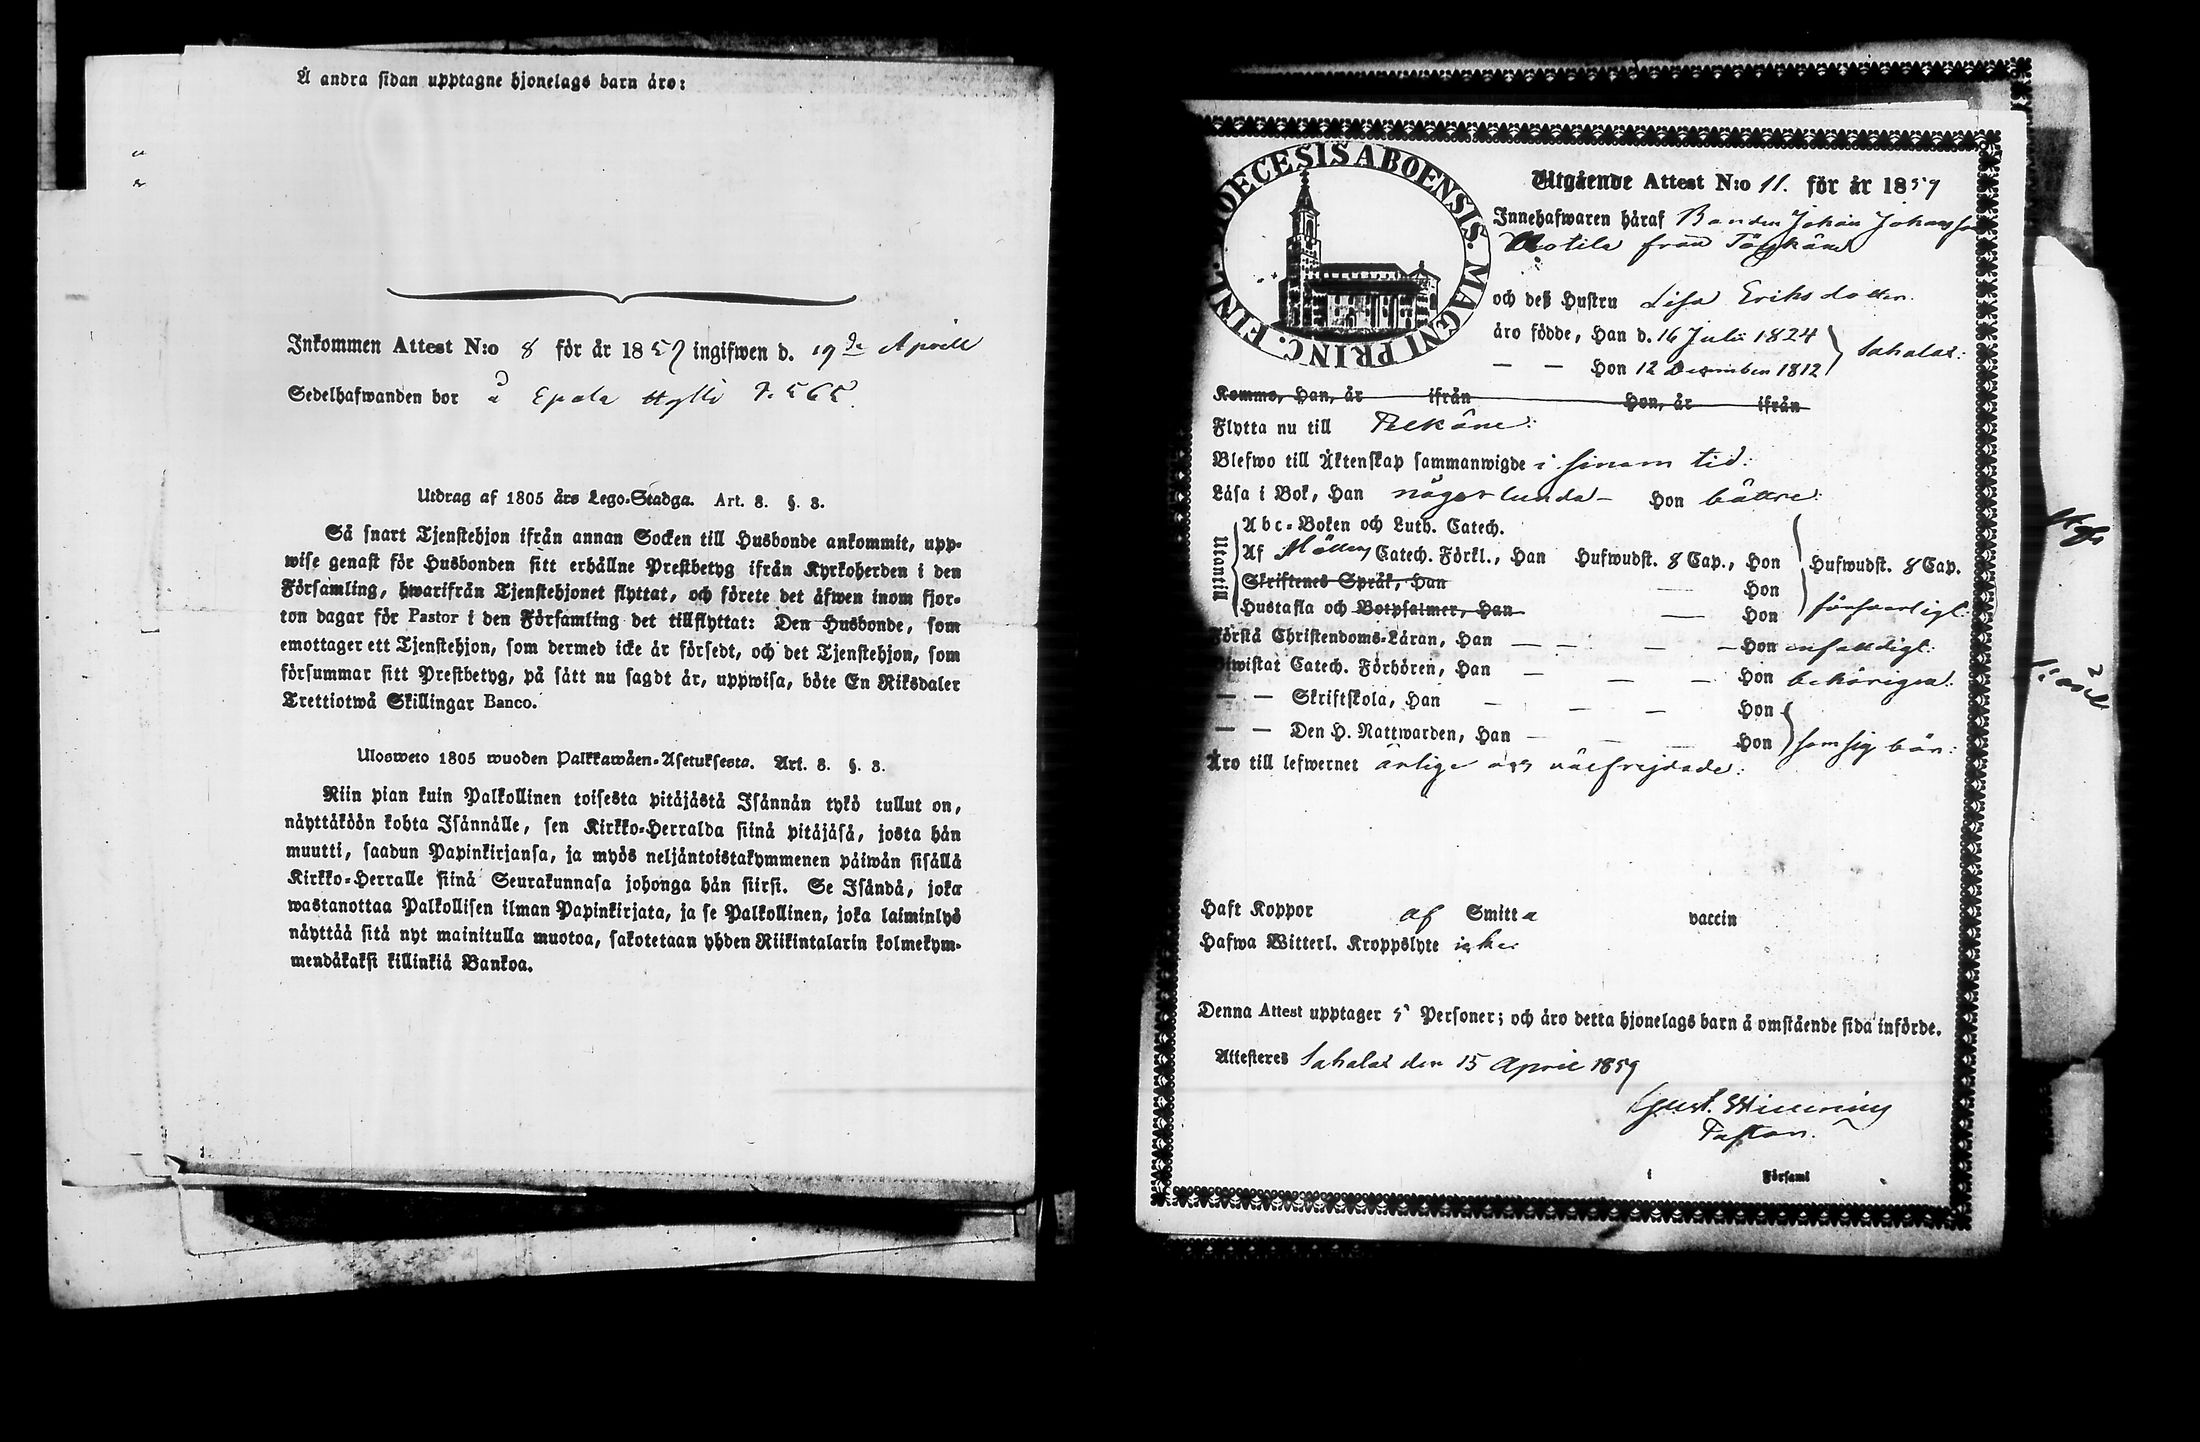 Å andra sidan upptagne hjonelags barn äro:
Inkommen Attest N:o 8 för år 1859 ingifwen d. 19de April
Sedelhafwanden bor å Epala P. 565.
Utdrag af 1805 års Lego-Stadga. Art. 8. §. 3.
Så snart Tjenstehjon ifrån annan Socken till Husbonde ankommit, upp-
wise genast för Husbonden sitt erhållne Prestbetyg ifrån Kyrkoherden i den
Församling, hwarifrån Tjenstehjonet flyttat, och förete det äfwen inom fjor-
ton dagar för Pastor i den Församling det tillflyttat: Den Husbonde, som
emottager ett Tjenstehjon, som dermed icke är försedt, och det Tjenstehjon, som
försummar sitt Prestbetyg, på sätt nu sagdt är, uppwisa, böte En Riksdaler
Trettiotwå Skillingar Banco.
Ulosweto 1805 wuoden Palkkawäen-Asetuksesta. Art. 8. §. 3.
Niin pian kuin Palkollinen toisesta pitäjästä Isännän tykö tullut on,
näyttäköön kohta Isännälle, sen Kirkko-Herralda siinä pitäjäsä, josta hän
muutti, saadun Papinkirjansa, ja myös neljäntoistakymmenen päiwän sisällä
Kirkko-Herralle siinä Seurakunnasa johonga hän siirsi. Se Isändä, joka
wastanottaa Palkollisen ilman Papinkirjata, ja se Palkollinen, joka laiminlyö
näyttää sitä nyt mainitulla muotoa, sakotetaan yhden Riikintalarin kolmekym-
mendäkaksi killinkiä Bankoa.
DIOECESIS ABOENSIS. MAGNI PRINC. FINL.
Utgående Attest N:o 11. för år 1859
Innehafwaren häraf Bonden Johan Johansson
från
och deß Hustru Lisa Eriksdotter.
äro födde, Han d. 16 Julii 1824 } Sahalax:
— — Hon 12 December 1812
Komma, Han, år ifrån Hon, år ifrån
Flytta nu till Pelkäne:
Blefwo till Äktenskap sammanwigde i sinom tid:
Läsa i Bok, Han någorlunda — Hon bättre:
Utantill
Abc-Boken och Luth. Catech.
Af Catech. Förkl., Han Hufwudst. 8 Cap., Hon Hufwudst. 8 Cap.
Skriftenes Språk, Han — Hon
Hustafla och Botpsalmer, Han — Hon försvarligt:
Förstå Christendoms-Läran, Han — — — — Hon enfaldigt:
Biwistat Catech. Förhören, Han — — — Hon behörigen:
— — Skriftskola, Han — — — Hon
— — Den H. Nattwarden, Han — — — Hon som sig bör:
Äro till lefwernet ärlige och välfrejdade:
Haft Koppor af Smitta vaccin
Hafwa Witterl. Kroppslyte icke
Denna Attest upptager 5 Personer; och äro detta hjonelags barn å omstående sida införde.
Attesteres Sahalax den 15 April 1859
Gust.
Pastor.
i Församl